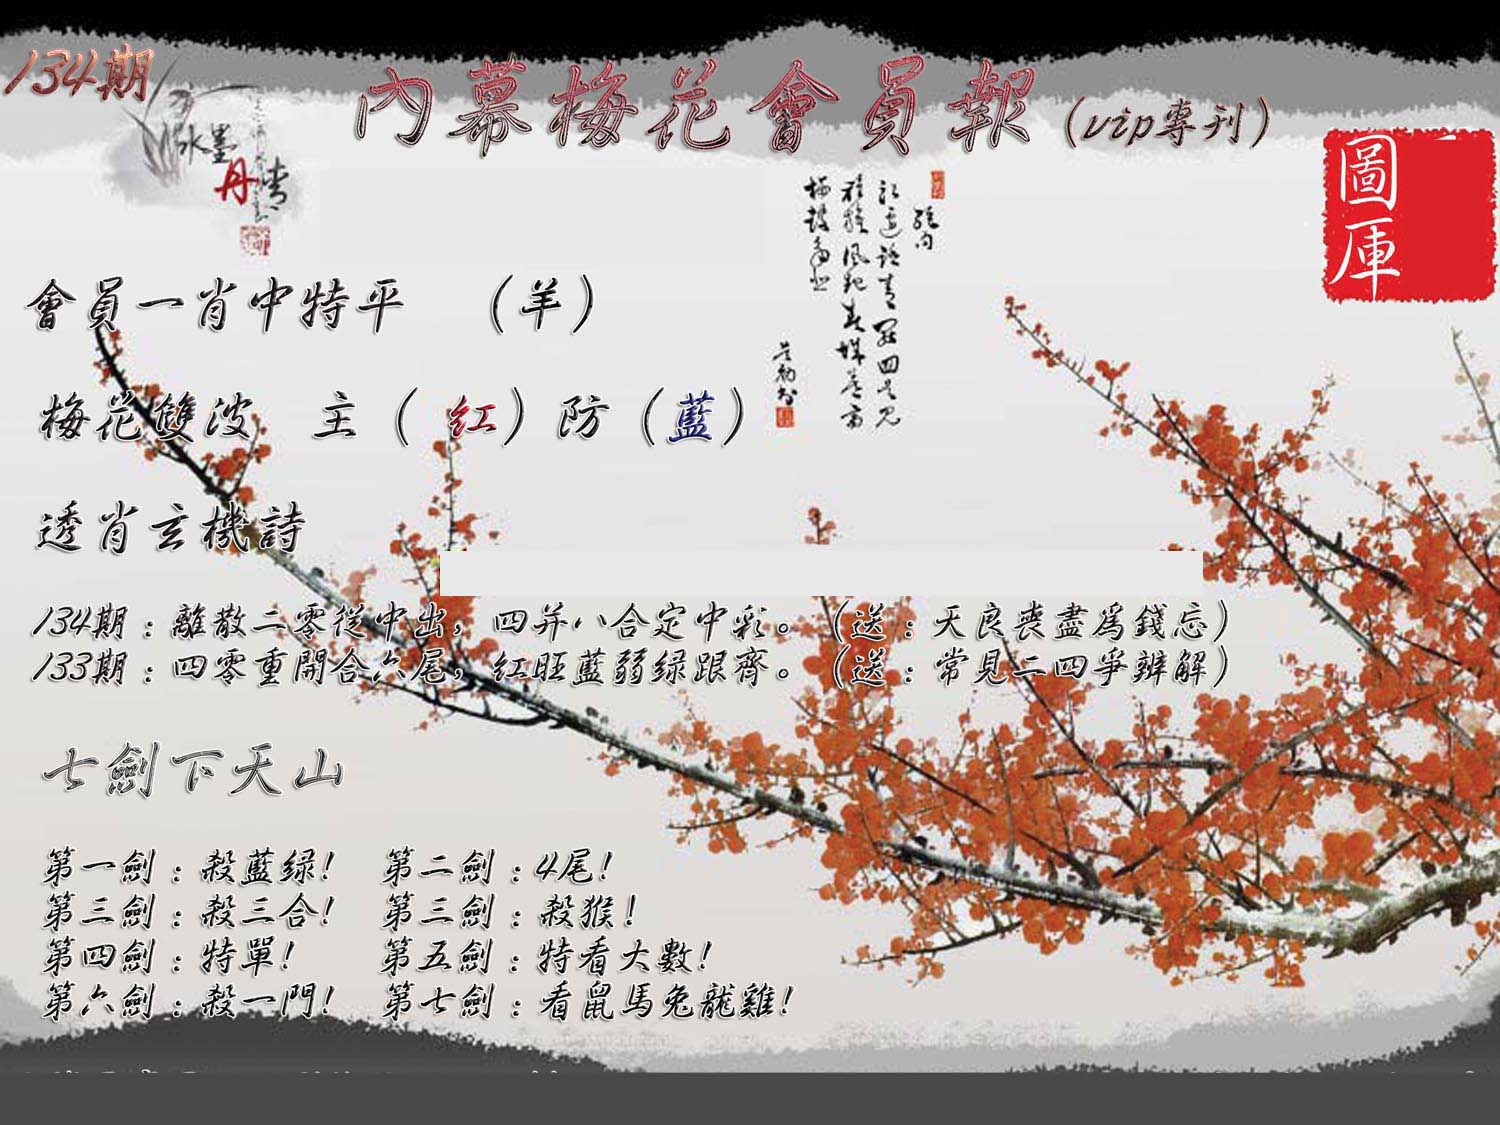 134期
內幕梅花會員報（vip專刊）
水墨
丹青
圖庫
會員一肖中特平　（羊）
梅花雙波　主（紅）防（藍）
透肖玄機詩
134期：離散二零從中出，四并八合定中彩。（送：天良喪盡為錢忘）
133期：四零重開合六尾，紅旺藍弱绿跟齊。（送：常見二四爭辨解）
七劍下天山
第一劍：殺藍绿！　第二劍：4尾！
第三劍：殺三合！　第三劍：殺猴！
第四劍：特單！　第五劍：特看大數！
第六劍：殺一門！　第七劍：看鼠馬兔龍雞！